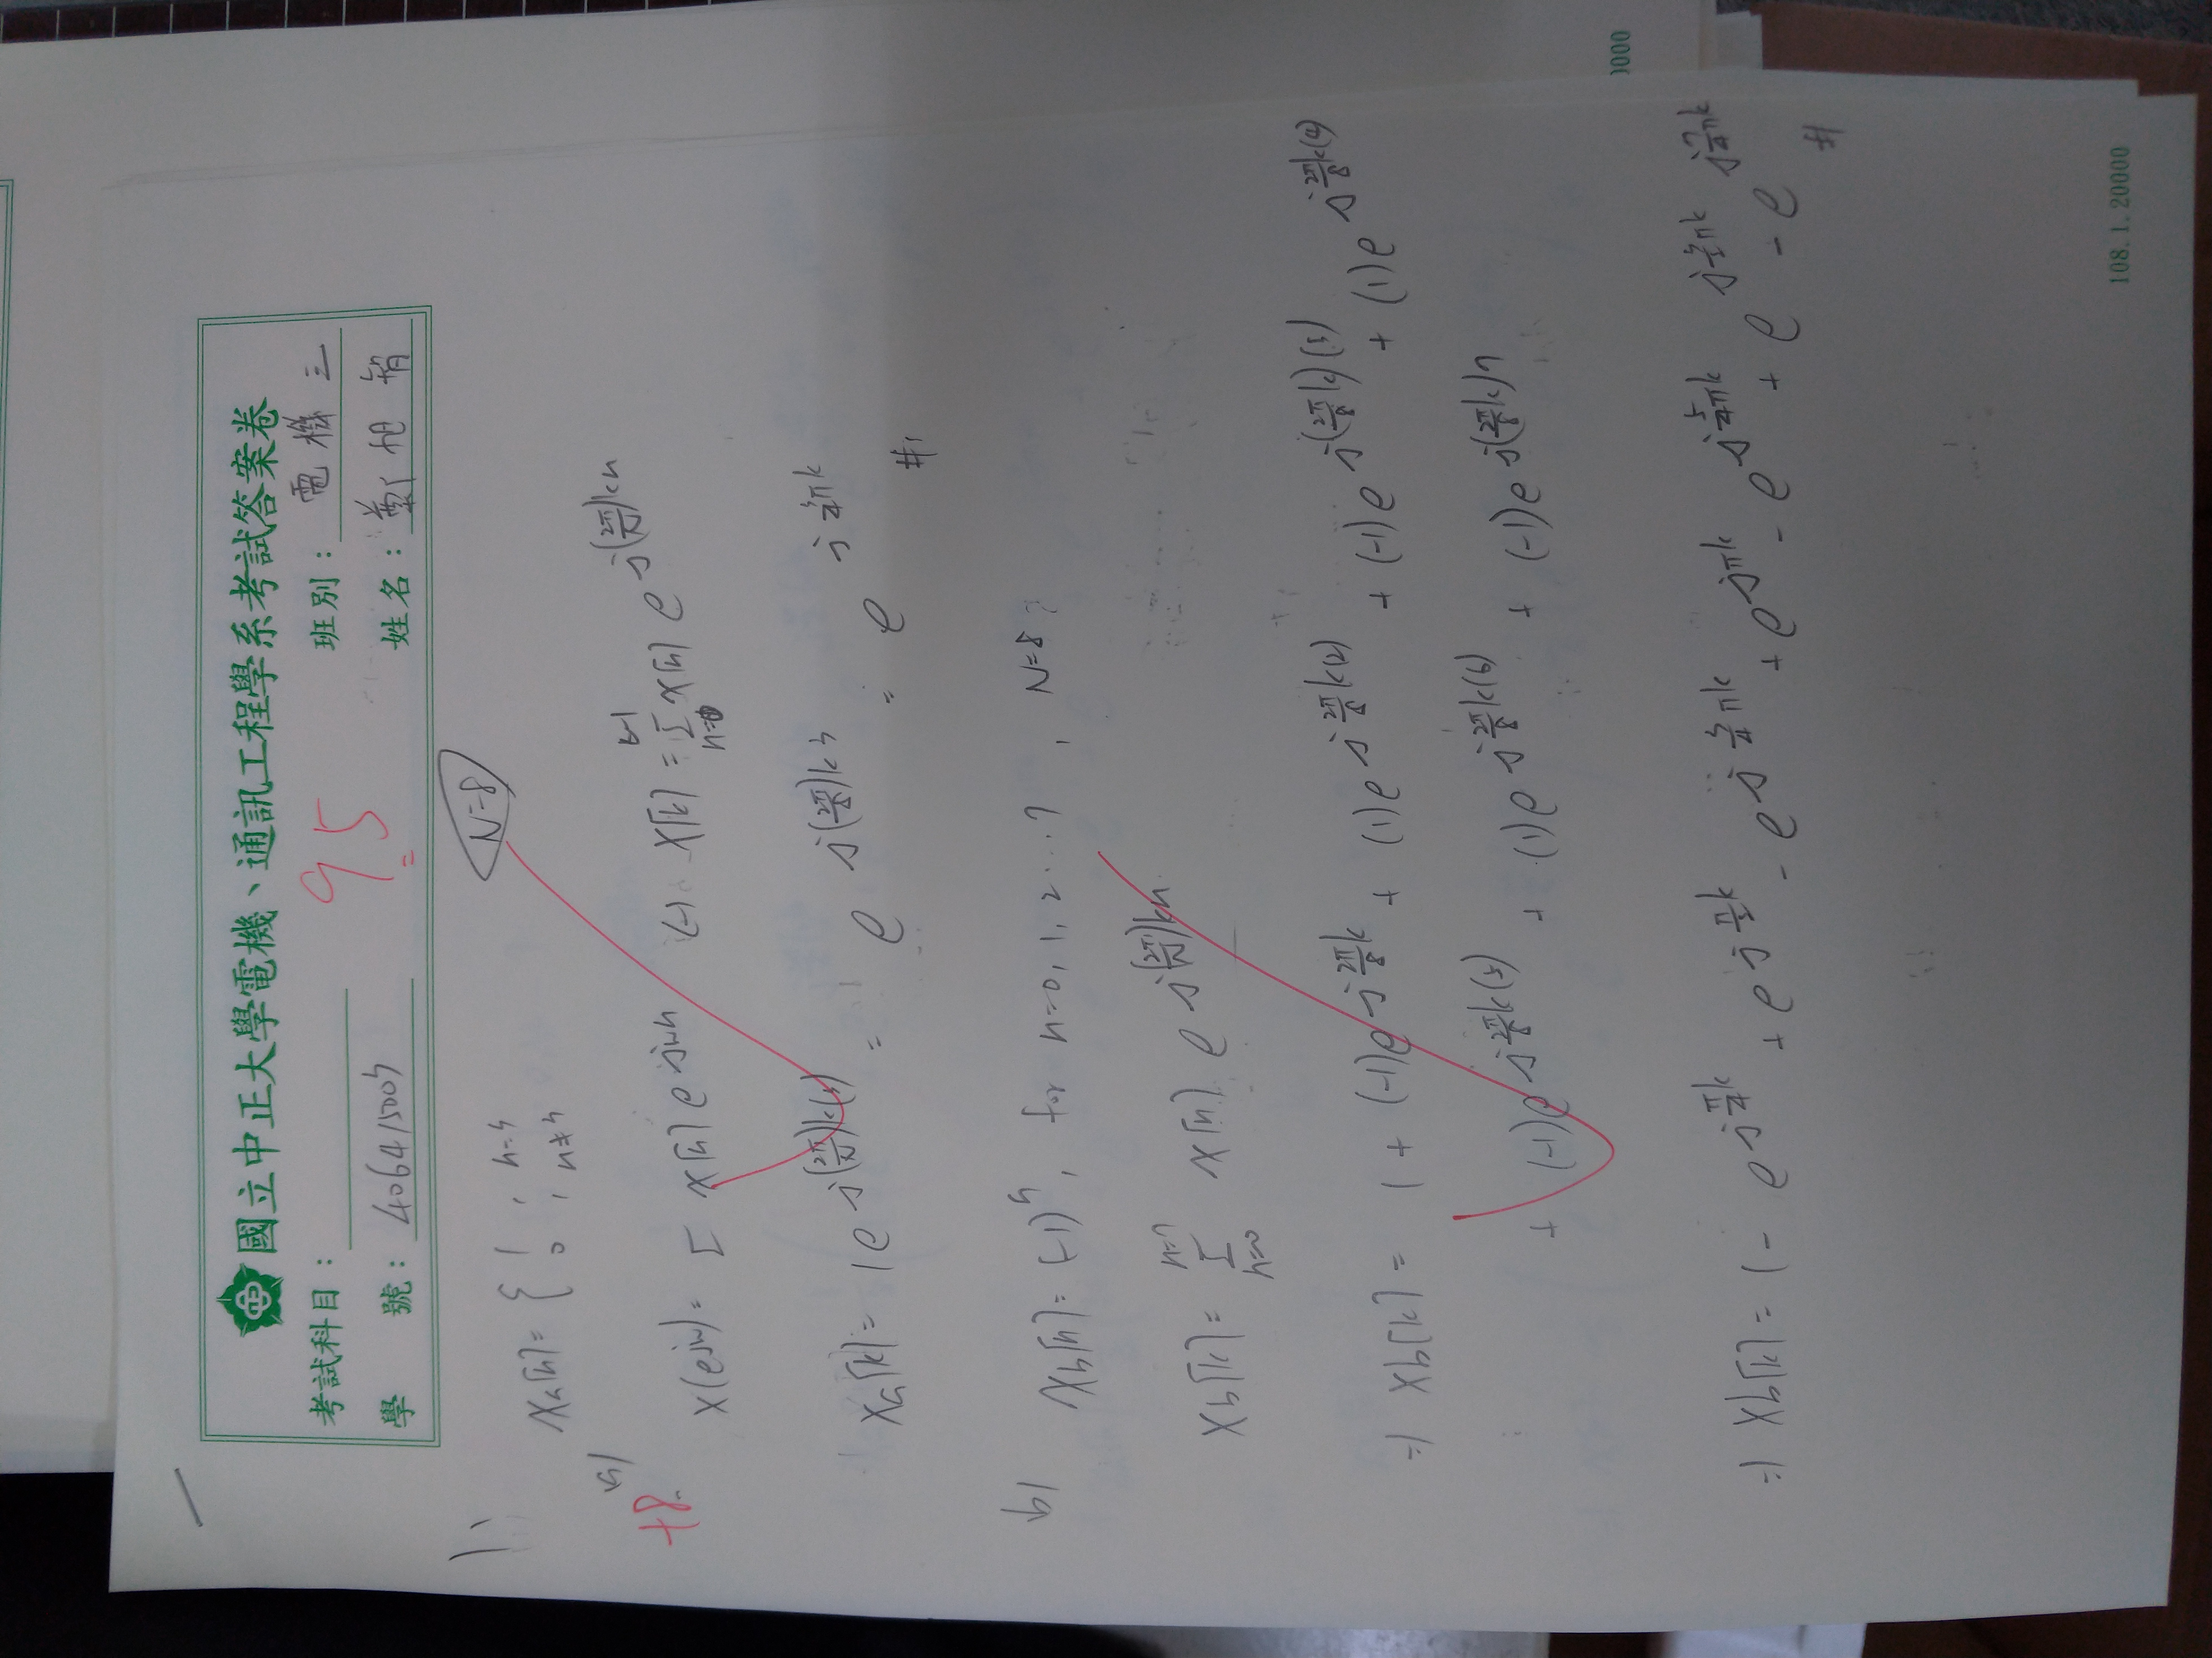 國立中正大學電機、通訊工程學系考試答案卷
考試科目：
95
班別：電機三
學 號：406415003
姓名：鄭旭智
1.
N=8
xa[n] = { 1 , n=3
0 , n≠3
(a)
+8
X(e^jω) = Σ x[n] e^jωn X[k] = Σ n=0 x[n] e^j(2π/N)kn
Xa[k] = 1e^j(2π/N)k(3) = e^j(2π/8)k3 = e^j3/4πk #
b)
xb[n] = (-1)^n, for n=0, 1, 2...7 , N=8
Xb[k] = Σ n=0 n=7 x[n] e^j(2π/N)kn
⇒ Xb[k] = 1 + (-1)e^j2π/8k + (1)e^j2π/8k(2) + (-1)e^j(2π/8k)(3) + (1)e^j2π/8k(4)
+ (-1)e^j2π/8k(5) + (1)e^j2π/8k(6) + (-1)e^j(2π/8k)7
⇒ Xb[k] = 1 - e^jπ/4k + e^jπ/2k - e^j3/4πk + e^jπk - e^j5/4πk + e^j3/2πk - e^j7/4πk
#
0000
108.1.20000